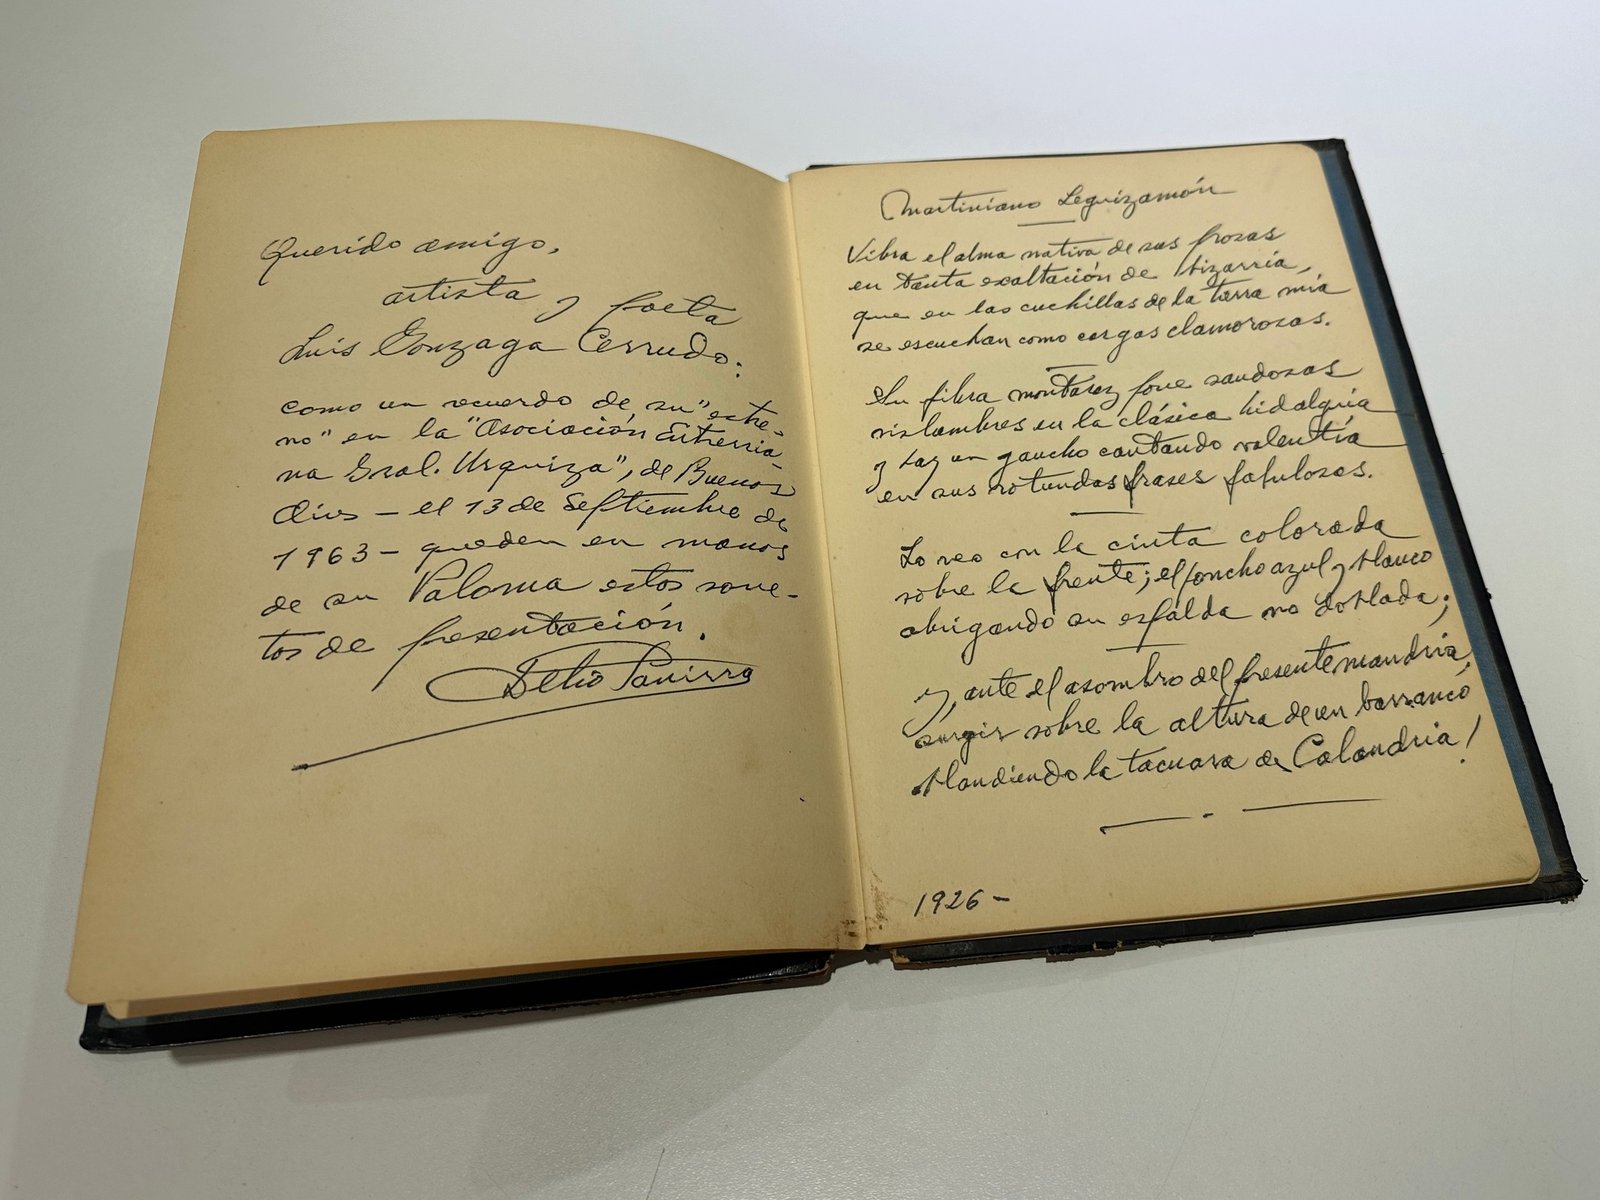 Querido amigo,
artista y poeta
Luis Gonzaga Cerrudo:
como un recuerdo de su "estre-
no" en la "Asociación Entrerria-
na Gral. Urquiza", de Buenos
Aires – el 13 de Septiembre de
1963 – queden en manos
de su Paloma estos sone-
tos de presentación.
Delio Panizza
Martiniano Leguizamón
Vibra el alma nativa de sus prosas
en tanta exaltación de bizarría,
que en las cuchillas de la tierra mía
se escuchan como cargas clamorosas.
Su fibra montaraz pone sandosas
vislumbres en la clásica hidalguía
y hay un gaucho cantando valentía
en sus rotundas frases fabulosas.
Lo veo con la cinta colorada
sobre la frente; el poncho azul y blanco
abrigando su espalda no doblada;
y, ante el asombro del presente mandria,
surgir sobre la altura de un barranco
blandiendo la tacuara de Calandria!
1926 –